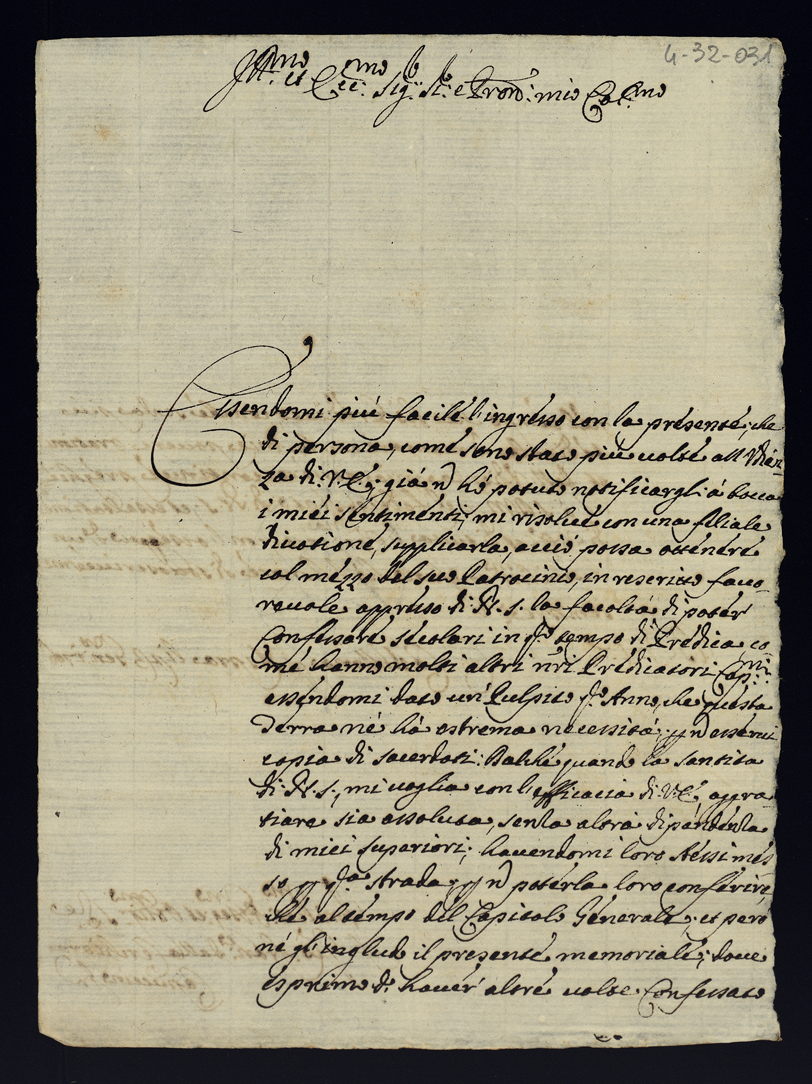 4-32-031
Ill.mo et Ecc.mo Sig.r Sr. e Pron: mio Col.mo
Essendomi piú facile l'ingresso con la presente, che
di persona, come sono stato piú volte all'Vdié-
za di V.E., giá nõ hó potuto notificargli á bocca
i miei sentimenti; mi risolvé con una filiale
divotione, supplicarla, acció possa ottenere
col mezzo del suo Patrocinio, in rescritto favo-
revole appresso di N.S. la facoltá di poter
Confessare secolari in q.o tempo di Predica, co-
me hanno molti altri nri Predicatori Cap.ni
essendomi dato un Pulpito q.o Anno, che questa
Terra né há estrema necessitá, p nõ esserui
copia di sacerdoti: Balché quando la santita
di N.S., mi voglia con l'efficacia di V.E. aggra-
tiare sia assoluta, senza altra dipendenza
di miei superiori; havendomi loro stessi mes-
so p q.a strada, p nõ poterla loro conferire,
ché al tempo del Capitolo Generale; et peró
né gl'includo il presente memoriale; dove
esprimo d' haver' altre volte Confessato